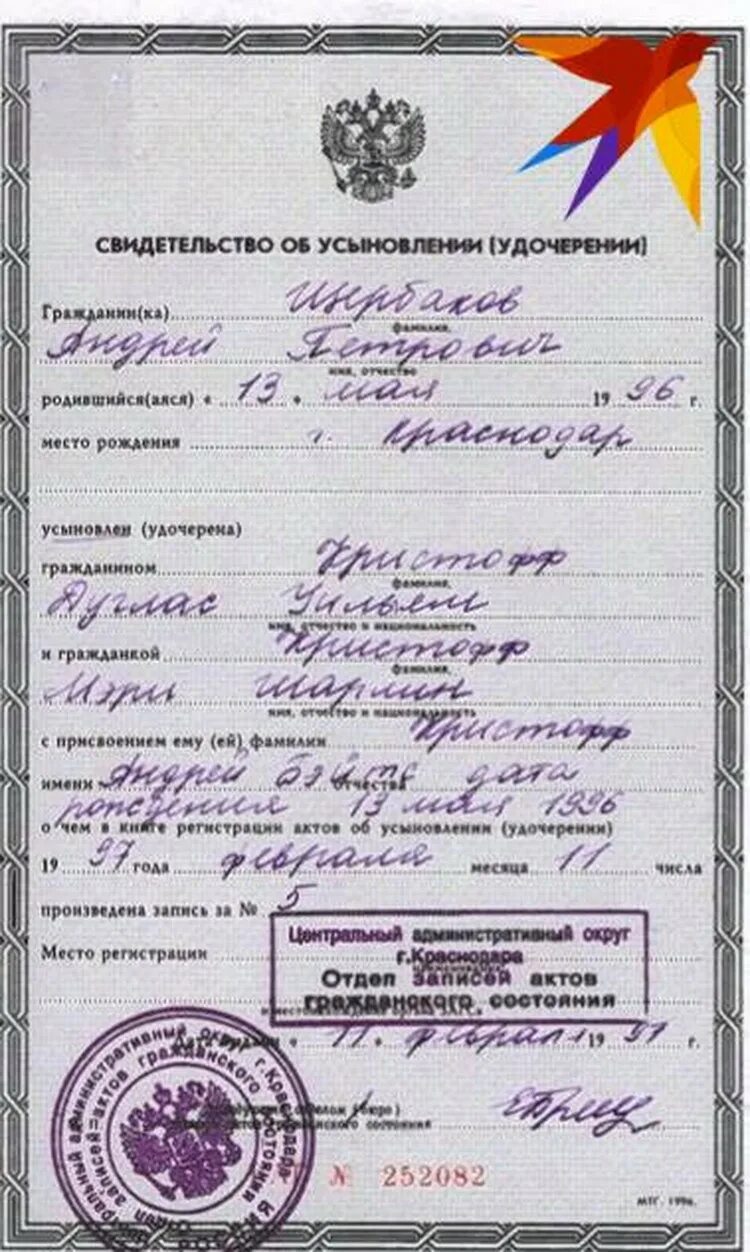 СВИДЕТЕЛЬСТВО ОБ УСЫНОВЛЕНИИ (УДОЧЕРЕНИИ)
Гражданин(ка) Щербаков
фамилия,
Андрей Петрович
имя, отчество
родившийся(аяся) « 13 » мая 19 96 г.
место рождения г. Краснодар
усыновлен (удочерена)
гражданином Кристофф
фамилия,
Дуглас Уильям
имя, отчество и национальность
и гражданкой Кристофф
фамилия,
Мэри Шарлин
имя, отчество и национальность
с присвоением ему (ей) фамилии Кристофф
имени Андрей Бэйтс отчества дата
рождения 13 мая 1996
о чем в книге регистрации актов об усыновлении (удочерении)
19 97 года февраля месяца 11 числа
произведена запись за № 5
Место регистрации
Центральный административный округ
г.Краснодара
Отдел записей актов
гражданского состояния
Дата выдачи « 11 » февраля 19 97 г.
актов гражданского состояния
№ 252082
МПГ. 1996.